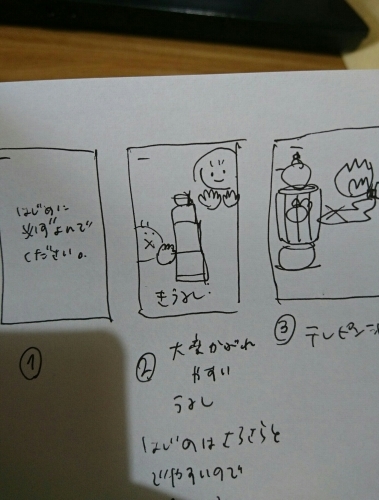 はじめに
必ずよんで
ください。
①
きうるし
②
大変かぶれ
やすい
うるし
はじめはさらさらと
でやすいので
③
テレピン